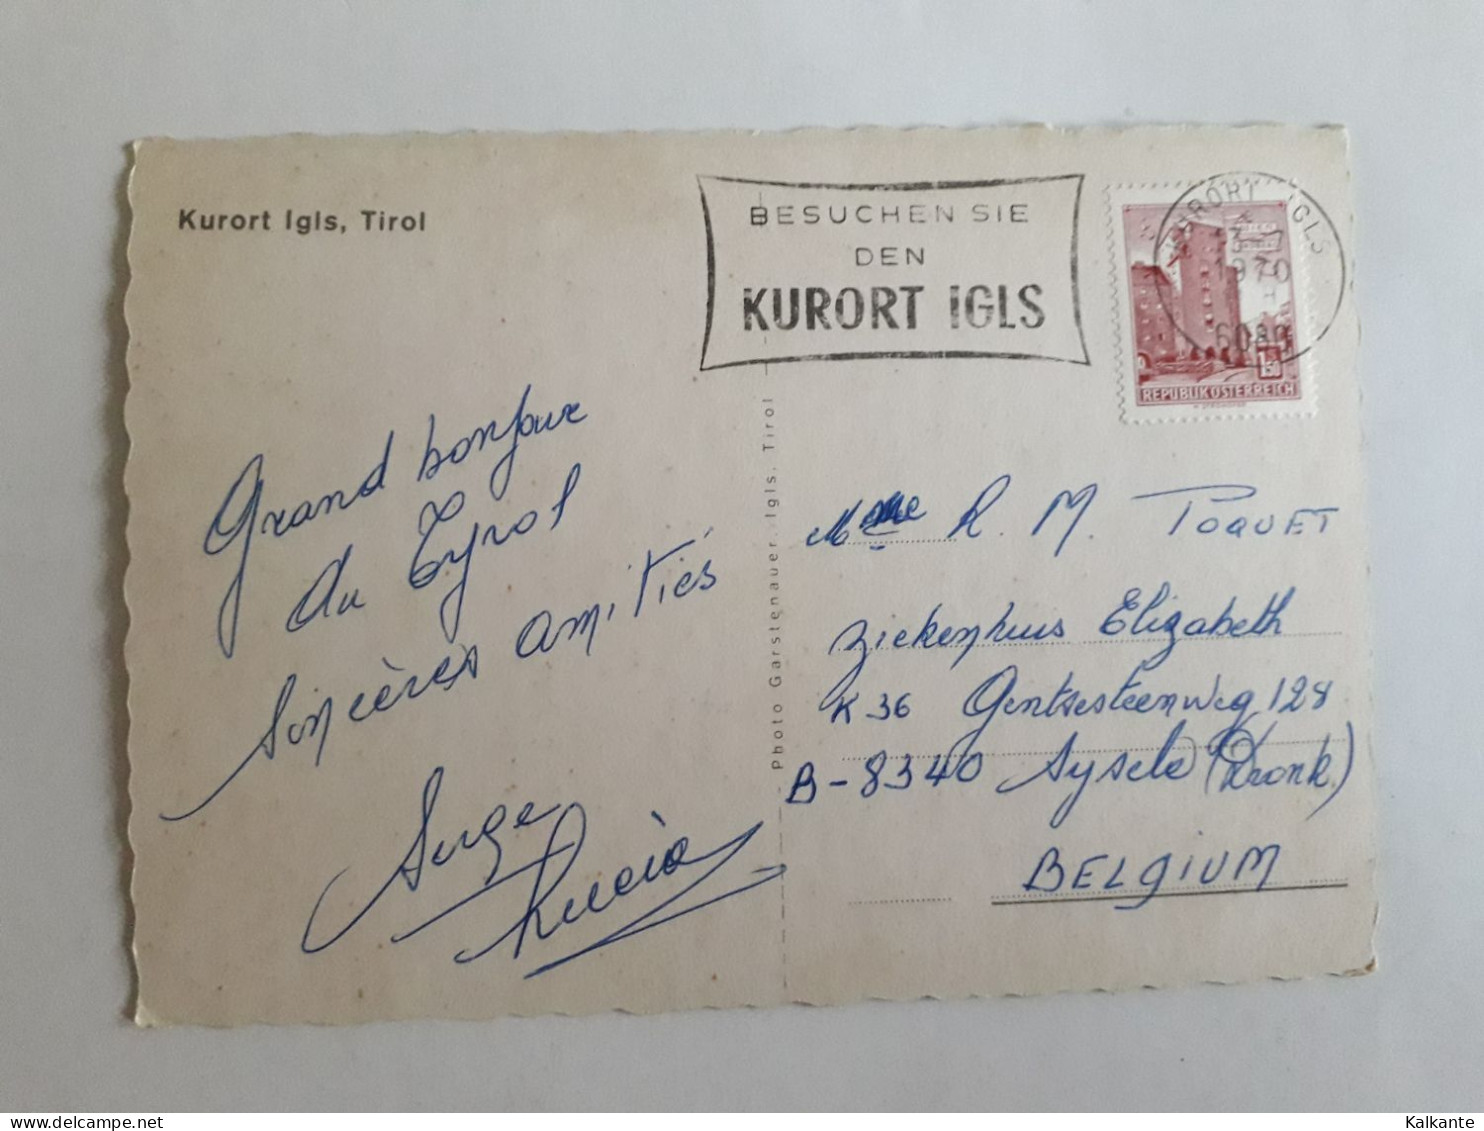 Kurort Igls, Tirol
BESUCHEN SIE
DEN
KURORT IGLS
KURORT IGLS
1970
6080
1.50
REPUBLIK ÖSTERREICH
Grand bonjour
du Tyrol
Sincères amitiés
Serge
Lucia
Photo Garstenauer, Igls, Tirol
Mme R. M. TOQUET
Ziekenhuis Elizabeth
K 36 Gentsesteenweg 128
B-8340 Sysele (Dronk.)
BELGIUM
Kalkante